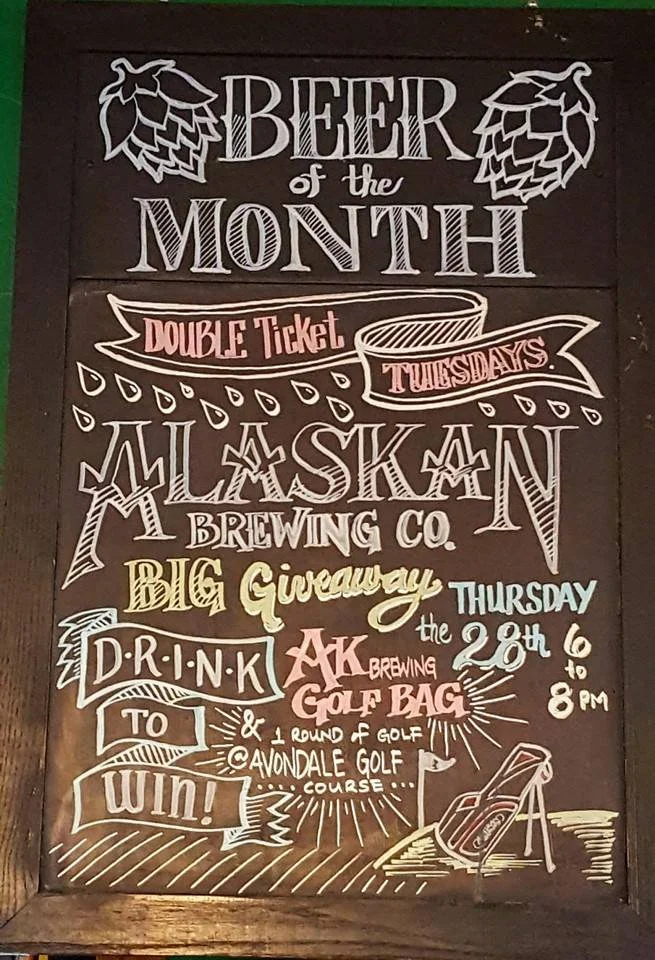 BEER
of the
MONTH
DOUBLE Ticket
TUESDAYS.
ALASKAN
BREWING CO.
BIG Giveaway
THURSDAY
the 28th
6
to
8 PM
D·R·I·N·K
TO
WIN!
AK BREWING
GOLF BAG
& 1 ROUND of GOLF
@AVONDALE GOLF
COURSE